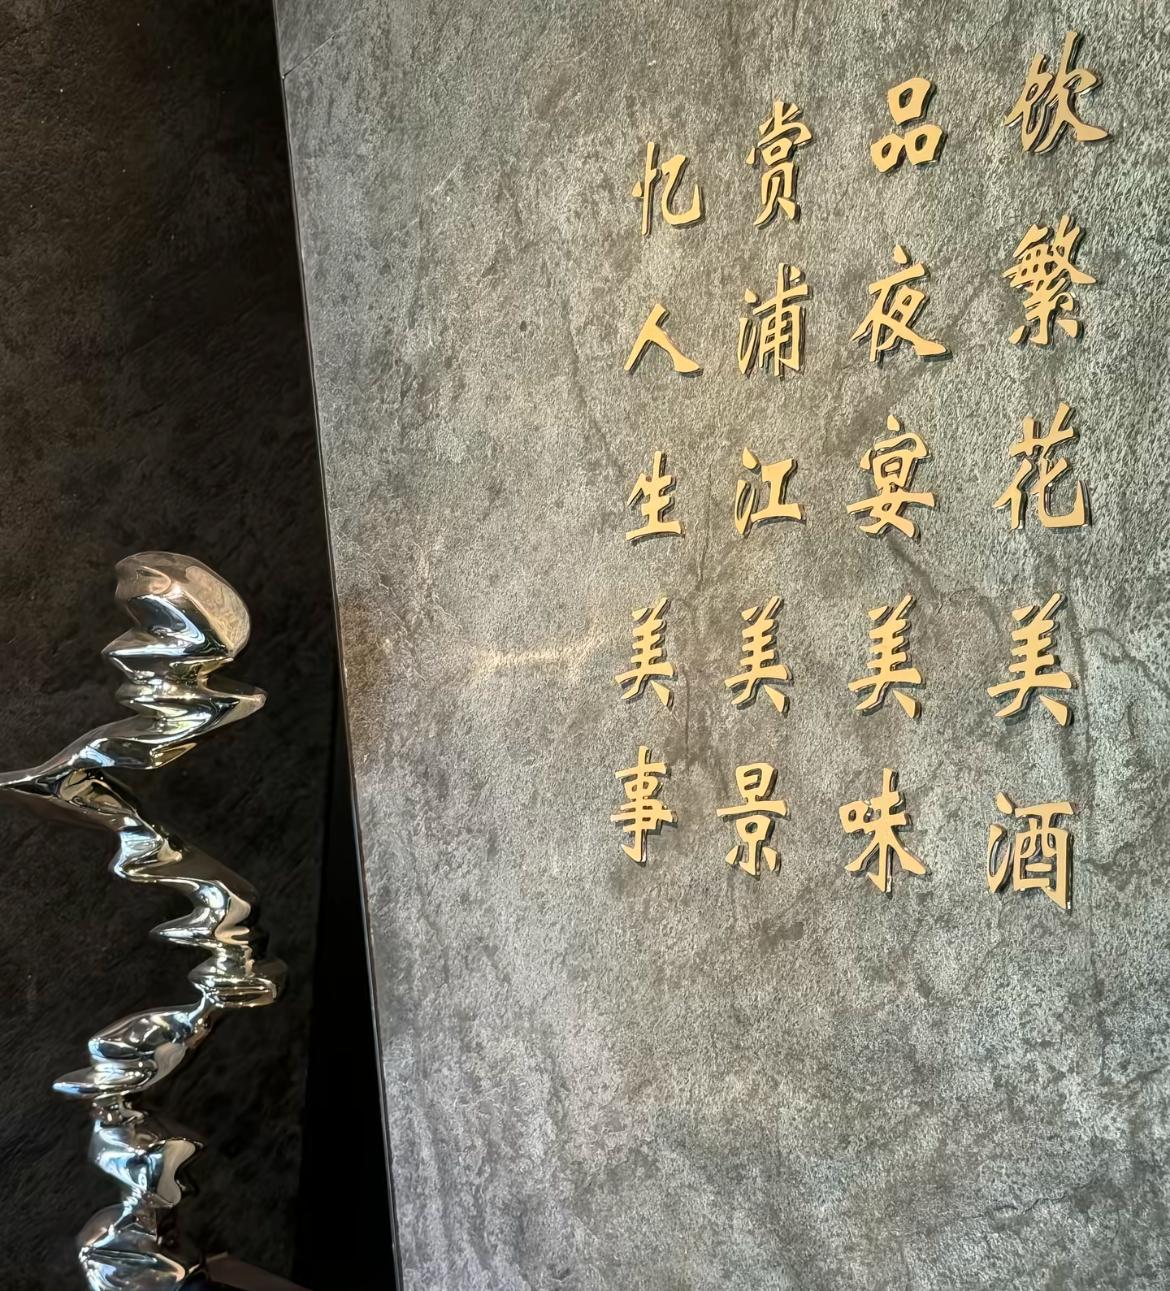 饮繁花美酒
品夜宴美味
赏浦江美景
忆人生美事